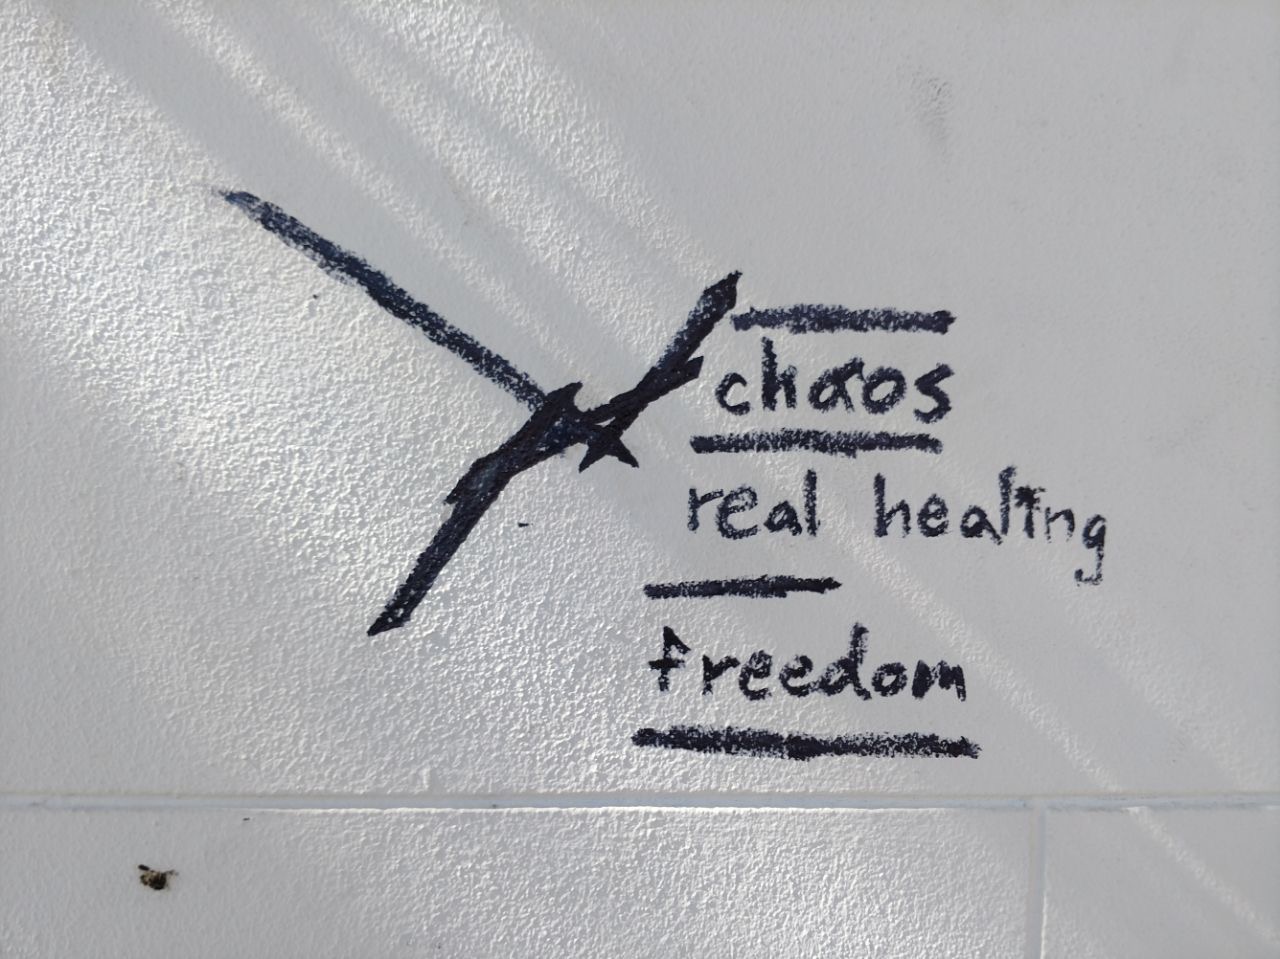 chaos
real healing
freedom